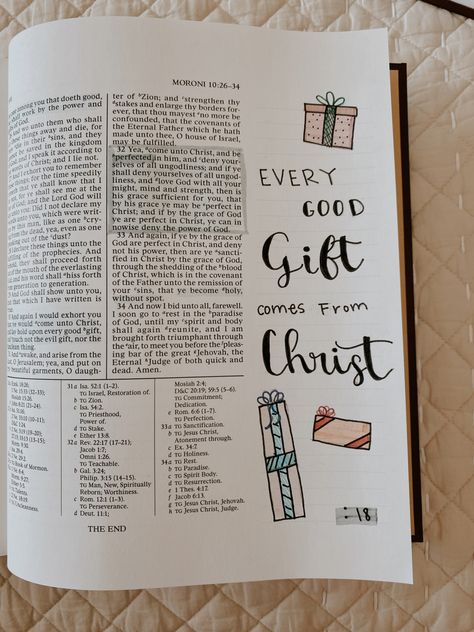 MORONI 10:26–34
among you that doeth good,
work by the power and
of God.
unto them who shall
things away and die, for
in their sins, and they
be saved in the kingdom
and I speak it according to
of Christ; and I lie not.
I exhort you to remember
for the time speedily
that ye shall know that I
for ye shall see me at the
God; and the Lord God will
Did I not declare my
unto you, which were writ-
this man, like as one cry-
from the dead, yea, even as one
out of the dust?
I declare these things unto the
of the prophecies. And
they shall proceed forth
of the mouth of the everlasting
and his word shall hiss forth
generation to generation.
And God shall show unto you,
that which I have written is
And again I would exhort you
would come unto Christ,
hold upon every good gift,
touch not the evil gift, nor the
thing.
And awake, and arise from the
O Jerusalem; yea, and put on
beautiful garments, O daugh-
ter of Zion; and strengthen thy
stakes and enlarge thy borders for-
ever, that thou mayest no more be
confounded, that the covenants of
the Eternal Father which he hath
made unto thee, O house of Israel,
may be fulfilled.
32 Yea, come unto Christ, and be
perfected in him, and deny your-
selves of all ungodliness; and if ye
shall deny yourselves of all ungod-
liness, and love God with all your
might, mind and strength, then is
his grace sufficient for you, that
by his grace ye may be perfect in
Christ; and if by the grace of God
ye are perfect in Christ, ye can in
nowise deny the power of God.
33 And again, if ye by the grace of
God are perfect in Christ, and deny
not his power, then are ye sancti-
fied in Christ by the grace of God,
through the shedding of the blood
of Christ, which is in the covenant
of the Father unto the remission of
your sins, that ye become holy,
without spot.
34 And now I bid unto all, farewell.
I soon go to rest in the paradise
of God, until my spirit and body
shall again reunite, and I am
brought forth triumphant through
the air, to meet you before the pleas-
ing bar of the great Jehovah, the
Eternal Judge of both quick and
dead. Amen.
31a Isa. 52:1 (1–2).
TG Israel, Restoration of.
b TG Zion.
c Isa. 54:2.
TG Priesthood,
Power of.
d TG Stake.
e Ether 13:8.
32a Rev. 22:17 (17–21);
Jacob 1:7;
Omni 1:26.
TG Teachable.
b Gal. 3:24;
Philip. 3:15 (14–15).
TG Man, New, Spiritually
Reborn; Worthiness.
c Rom. 12:1 (1–3).
TG Perseverance.
d Deut. 11:1;
Mosiah 2:4;
D&C 20:19; 59:5 (5–6).
TG Commitment;
Dedication.
e Rom. 6:6 (1–7).
TG Perfection.
33a TG Sanctification.
b TG Jesus Christ,
Atonement through.
c Ex. 34:7.
d TG Holiness.
34a TG Rest.
b TG Paradise.
c TG Spirit Body.
d TG Resurrection.
e 1 Thes. 4:17.
f Jacob 6:13.
g TG Jesus Christ, Jehovah.
h TG Jesus Christ, Judge.
THE END
EVERY
GOOD
Gift
COMES FROM
Christ
:18